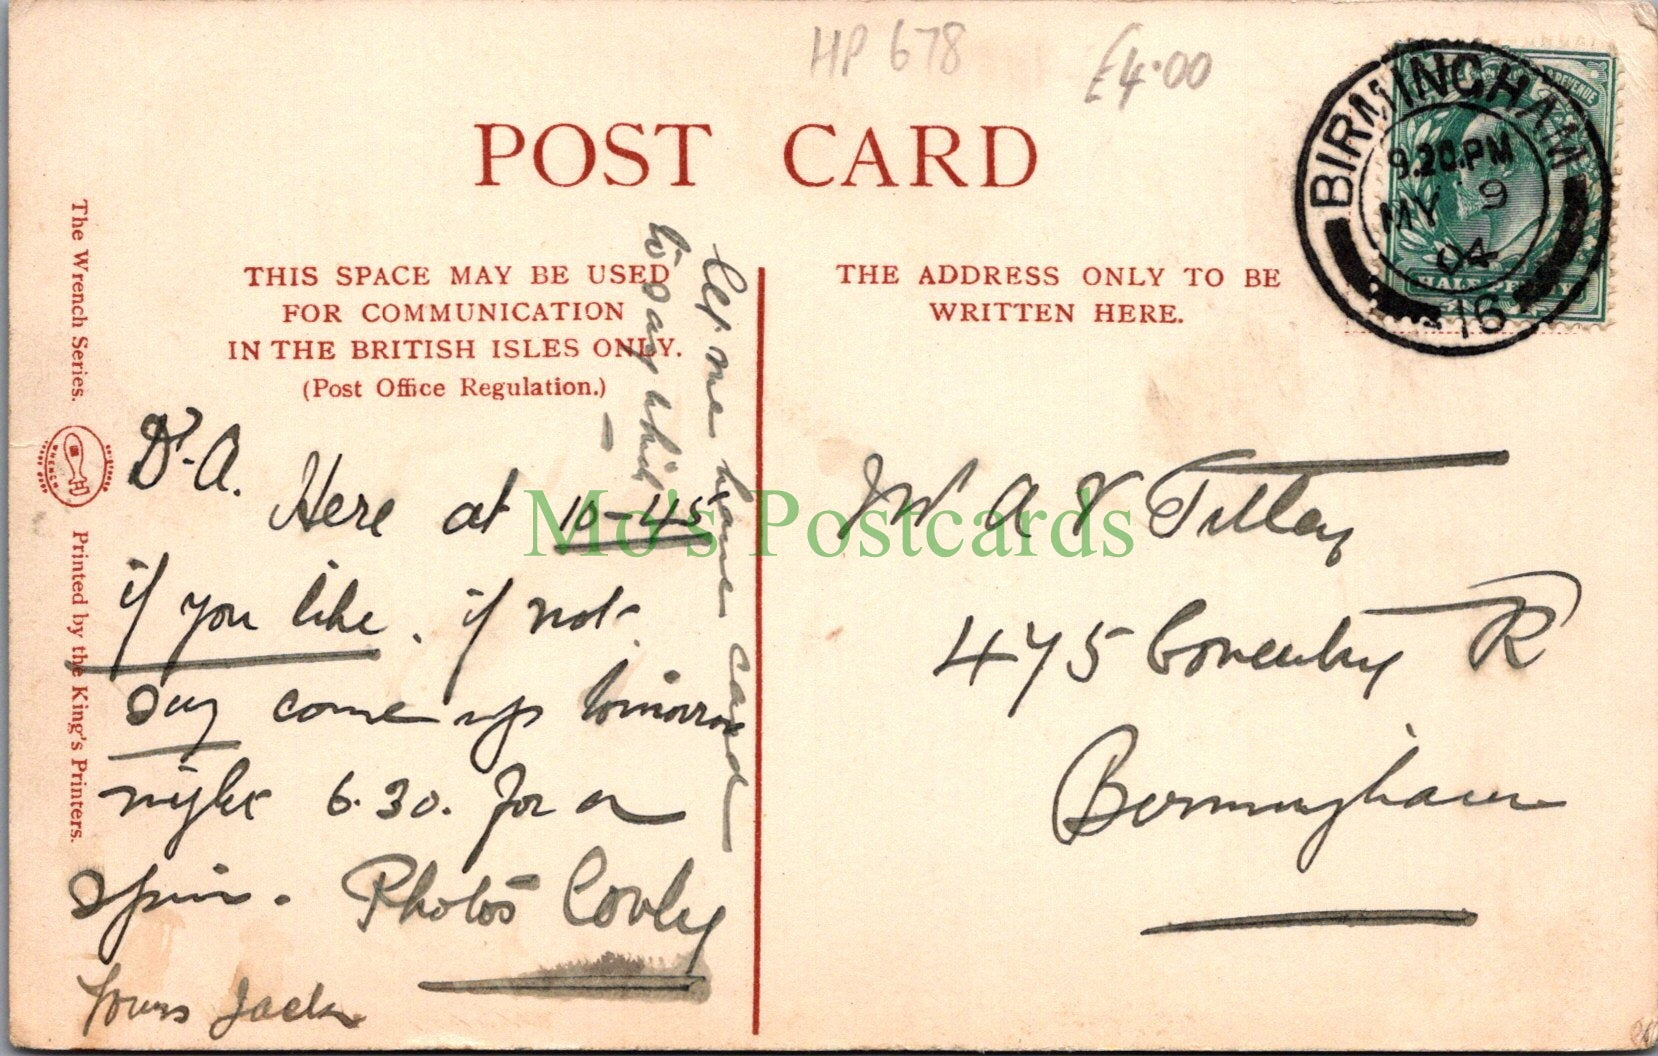 HP 678
£4.00
POST CARD
BIRMINGHAM
9.20.PM
MY 9
04
16
REVENUE
HALF PENNY
THIS SPACE MAY BE USED
FOR COMMUNICATION
IN THE BRITISH ISLES ONLY.
(Post Office Regulation.)
THE ADDRESS ONLY TO BE
WRITTEN HERE.
The Wrench Series.
Printed by the King's Printers.
Dr. A.
Here at 10-45
if you like. if not
say come up tomorrow
night 6.30. for a
spin. Photos Lovly
Yours Jack
me home card
to say which
A V Tilley
475 Coventry R
Birmingham
Mo's Postcards